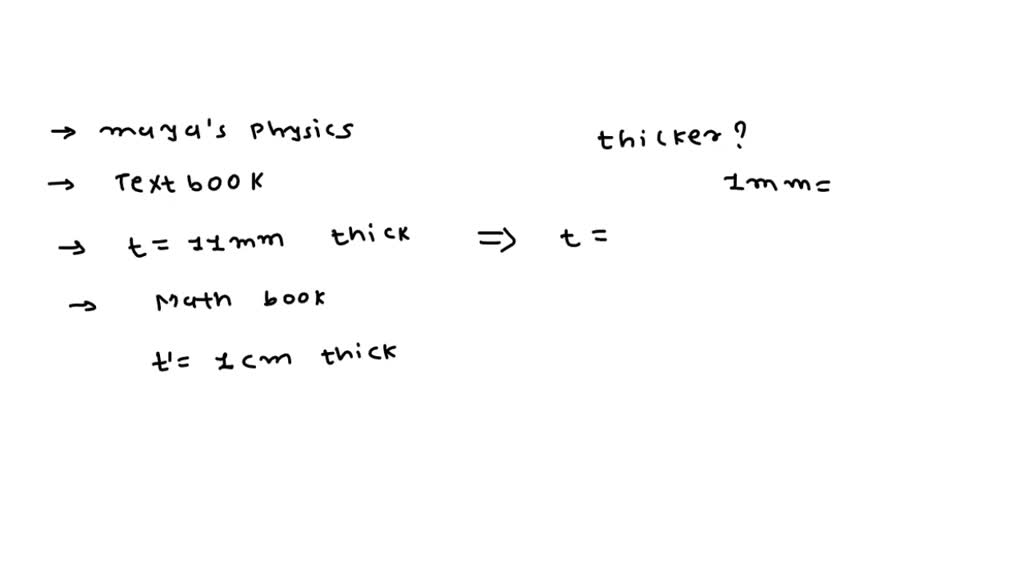 → maya's physics
thicker?
→ Text book
1mm=
→ t = 11mm thick ⇒ t =
→ Math book
t'= 1cm thick